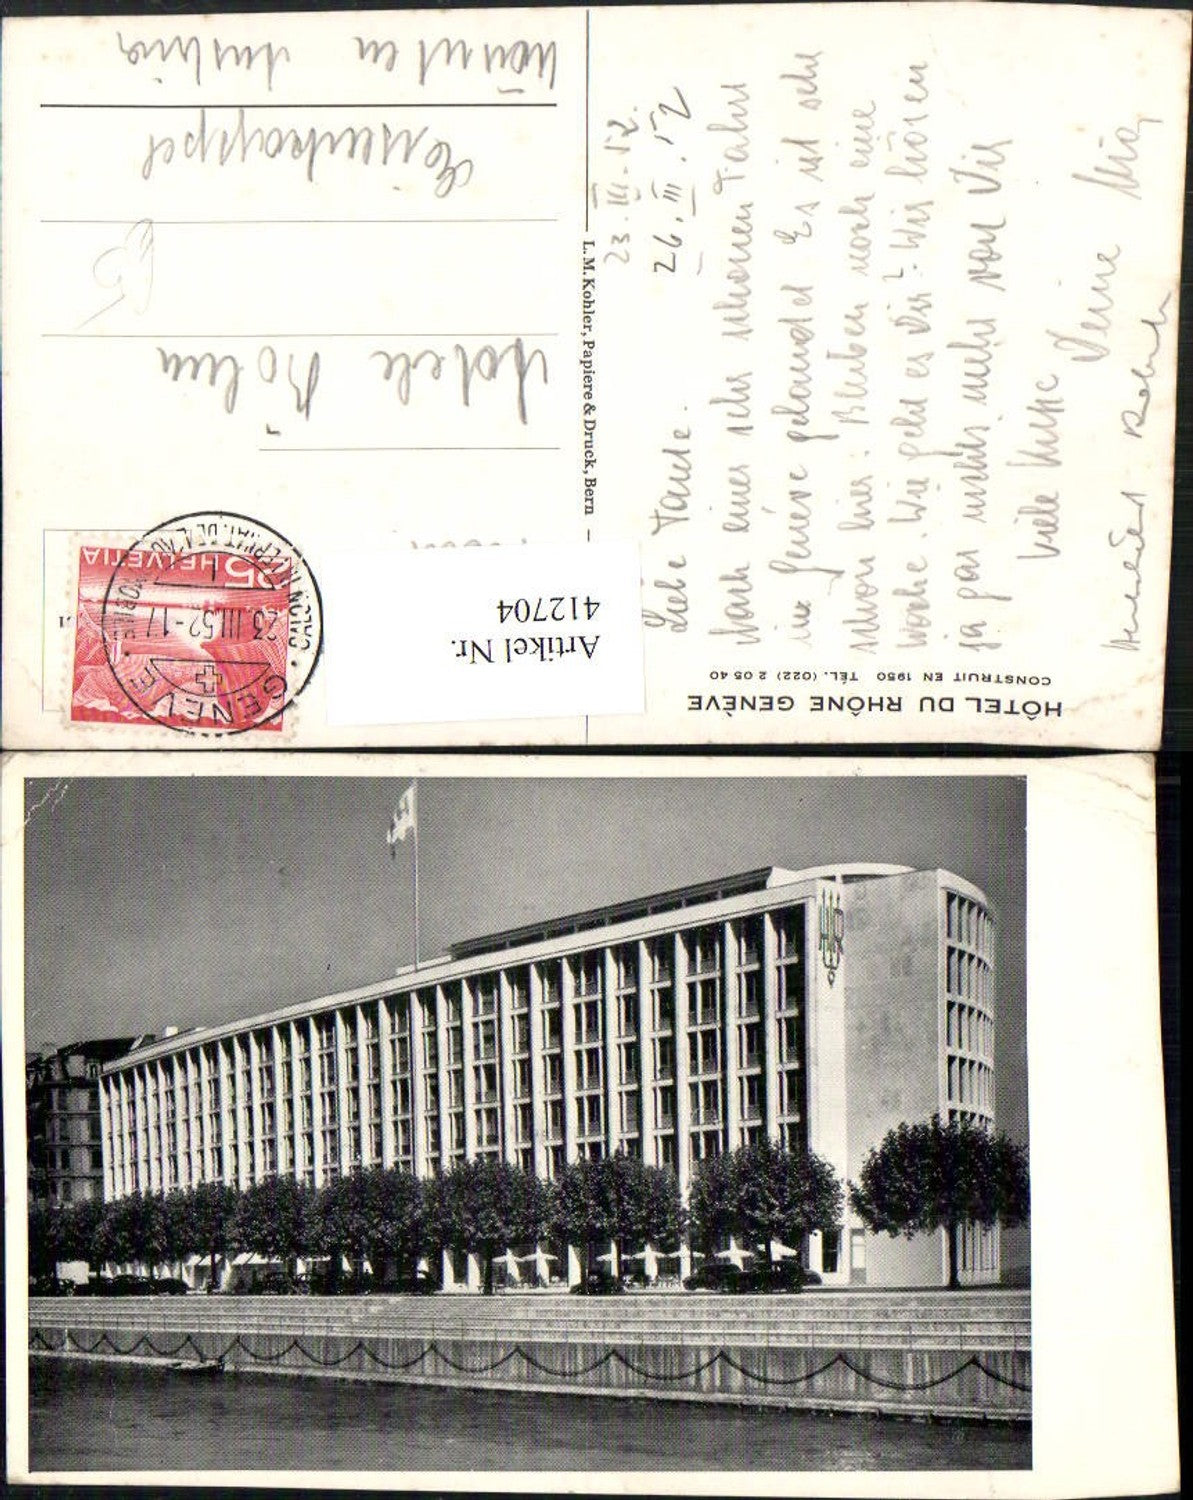 HÔTEL DU RHÔNE GENÈVE
CONSTRUIT EN 1950 TÉL. (022) 2 05 40
23. III. 52.
26. III. 52
Liebe Tante.
Nach einer sehr schönen Fahrt
in Genéve gelandet Es ist sehr
schön hier. Bleiben noch eine
woche. Wie geht es Dir? Wir hören
ja gar nichts mehr von Dir
Viele Küsse Deine
L. M. Kohler, Papiere & Druck, Bern
Artikel Nr.
412704
GENÈVE
23. III. 52-17
SALON INTERNAT. DE L'AUTOMOBILE
25 HELVETIA
Hotel
Eisenkappel
Kärnten Austria